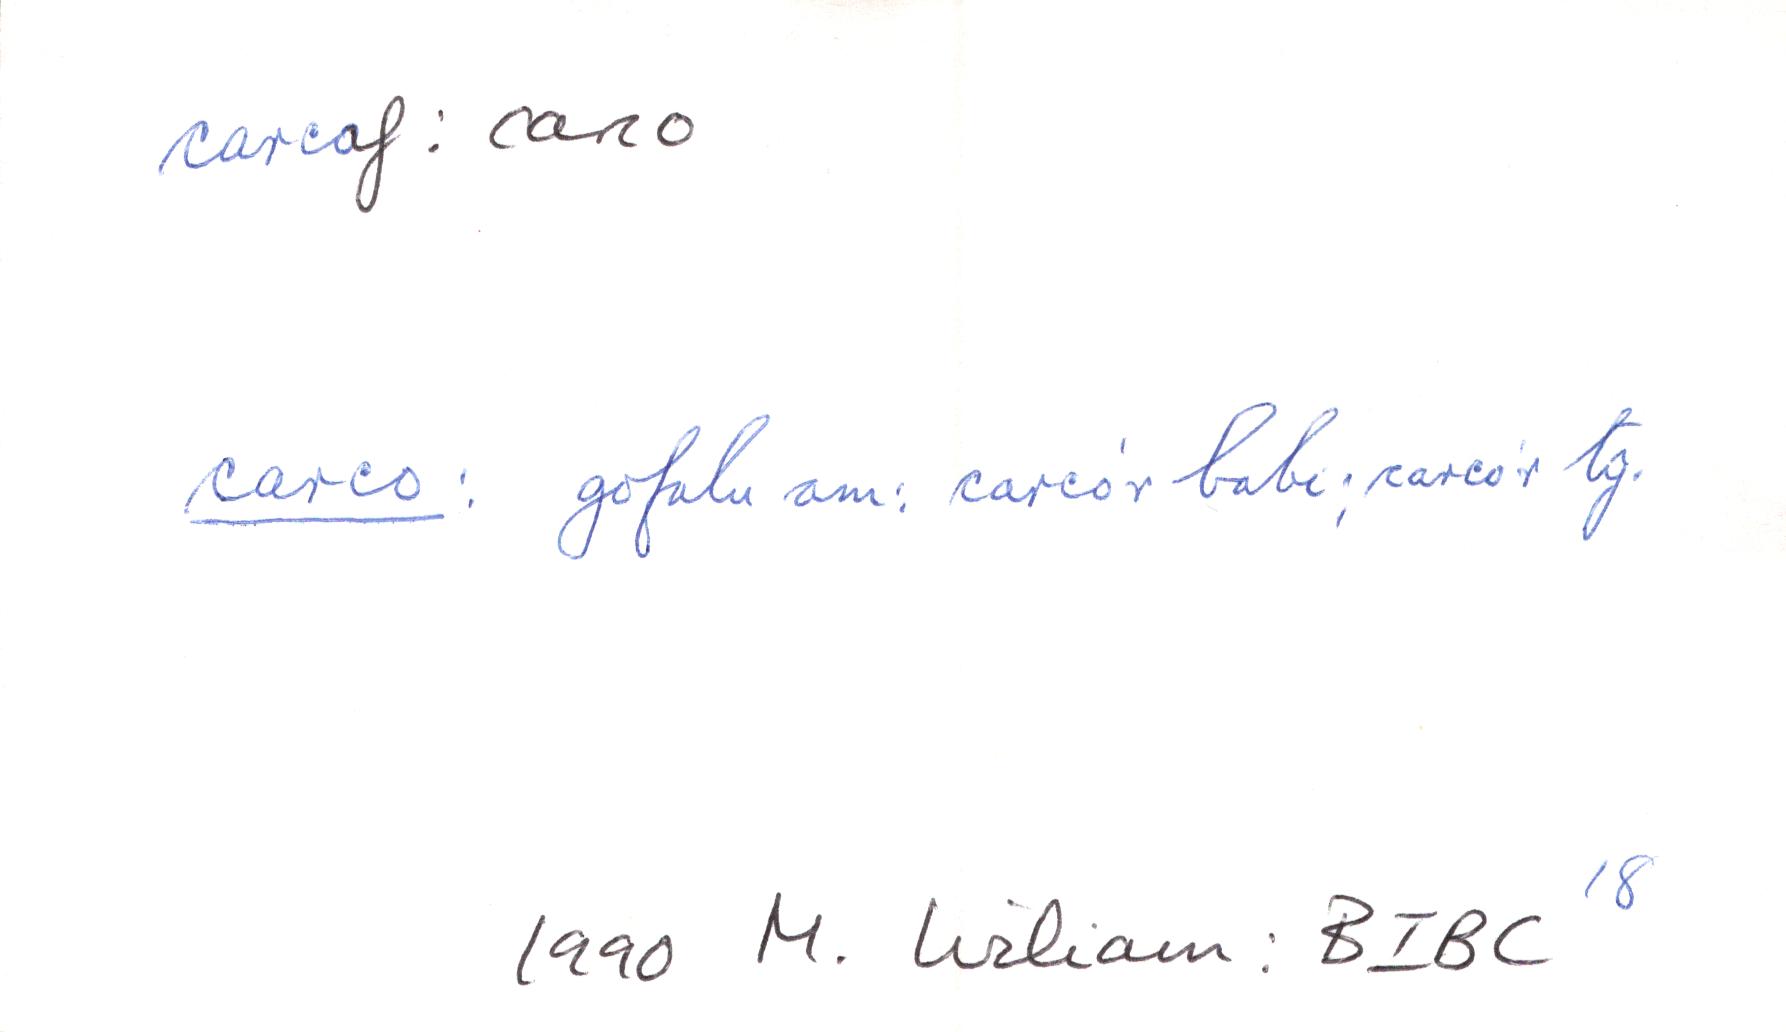 carcaf: carco
carco: gofalu am: carco'r babi; carco'r tŷ.
1990 M. Wiliam: BIBC 18